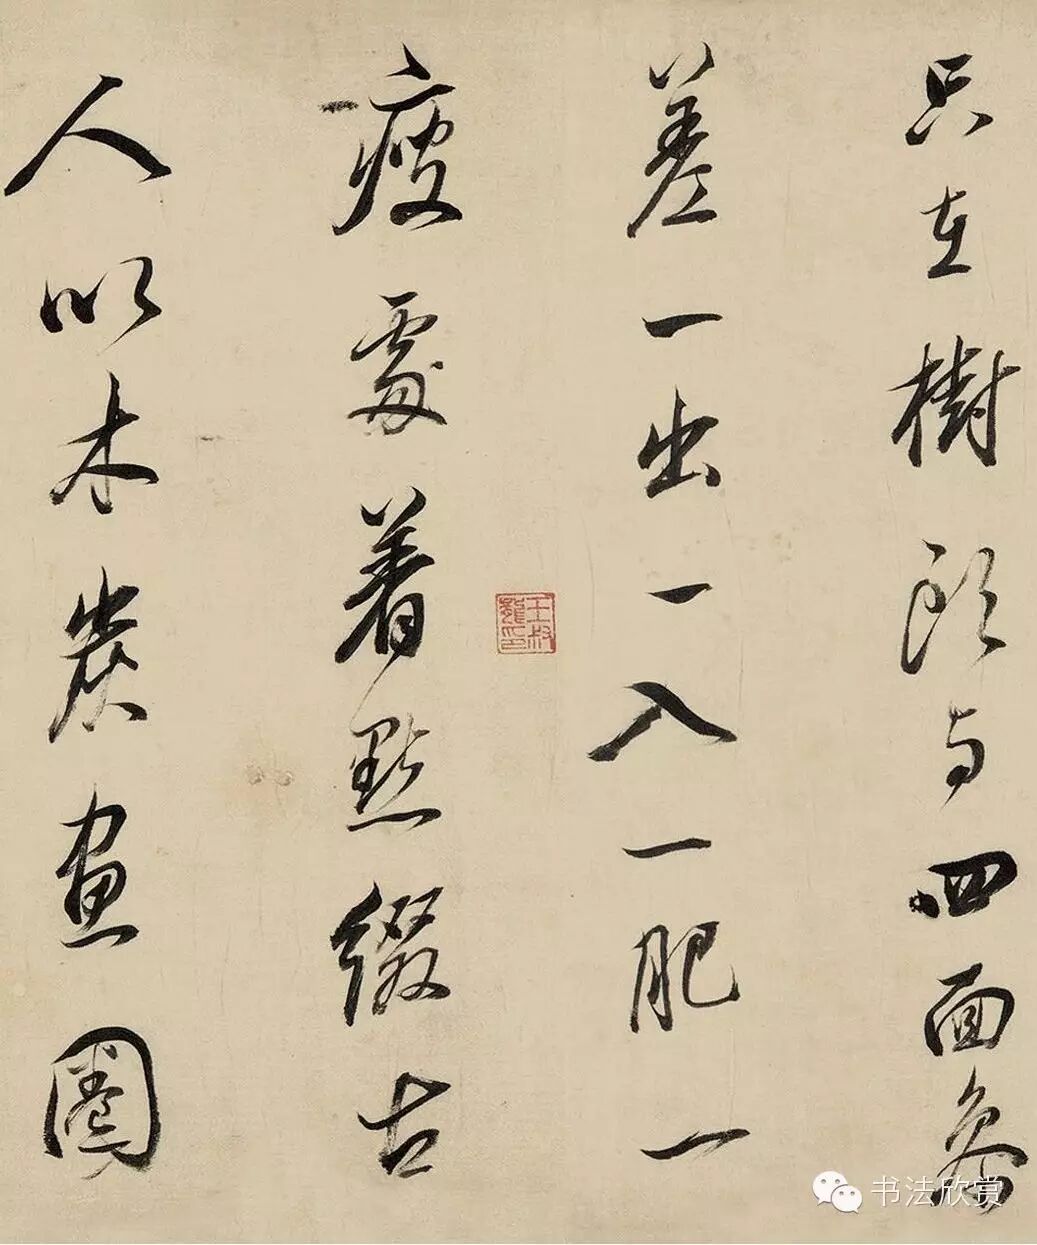 只在樹頭與四面參
差一出一入一肥一
瘦處着點綴古
人以木炭畫圈
王叔龍印
书法欣赏